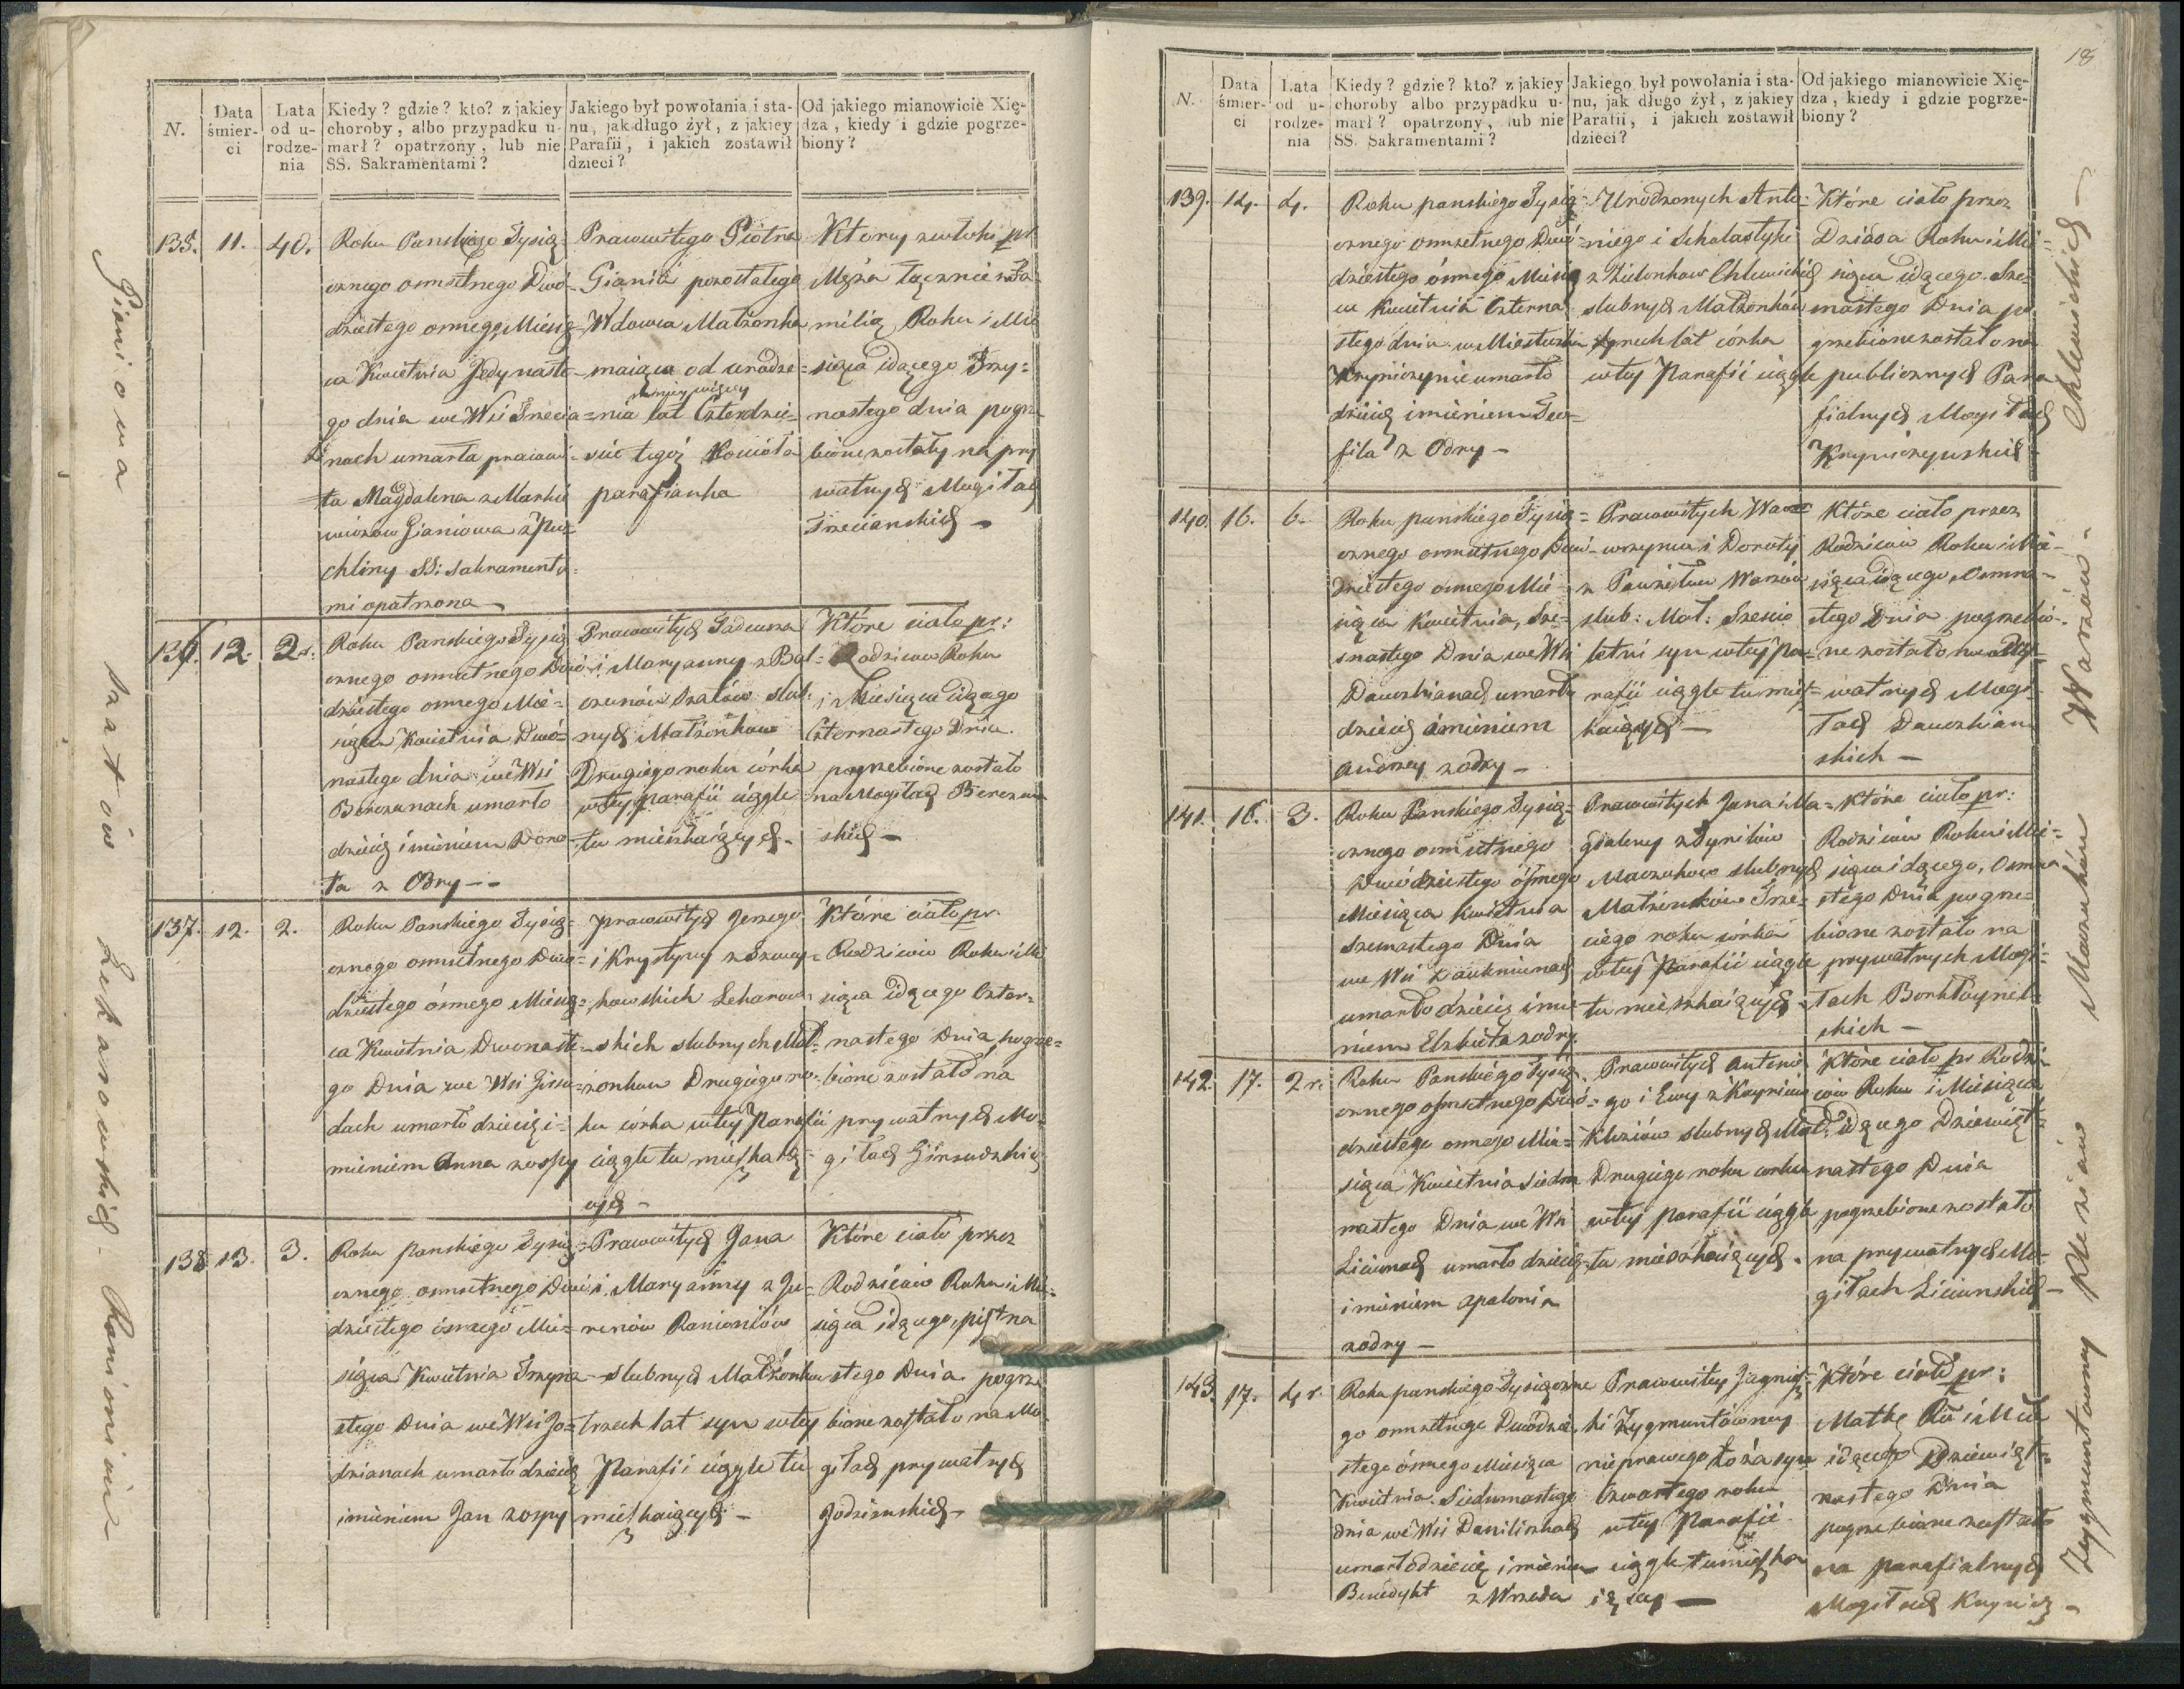 N.
Data śmier-ci
Lata od u-rodze-nia
Kiedy? gdzie? kto? z jakiey choroby, albo przypadku u-marł? opatrzony, lub nie SS. Sakramentami?
Jakiego był powołania i sta-nu, jak długo żył, z jakiey Parafii, i jakich zostawił dzieci?
Od jakiego mianowicie Xię-dza, kiedy i gdzie pogrze-biony?
135. 11. 40.
Roku Panskiego Tysią-
cznego osmsetnego Dwó-
dziestego osmego Miesią-
ca Kwietnia Jedynaste-
go dnia we Wsi Trecia-
nach umarła pracowi-
ta Magdalena z
Gianiowa z Pu-
chliny SS: Sakramenta-
mi opatrzona
Pracowitego Piotra
Giania pozostałego
Wdowca Małżonka
maiąca od urodze-
nia lat mniey więcey Czterdzie-
ście tegoż Kościoła
parafianka
Ktorey zwłoki pr
Męża łącznie z Fa-
milią, Roku i Mie
siąca idącego Trzy-
nastego dnia pogrze-
bione zostały na pry
watnych Mogiłach
Trecianskich
136. 12. 2.
Roku Panskiego Tysią
cznego osmsetnego Dwó
dziestego osmego Mie-
siąca Kwietnia Dwó-
nastego dnia we Wsi
Berczanach umarło
dziecię imieniem Doro-
ta z Odry
Pracowitych Tadeusza
i Maryanny z Bal-
czunów Szatow slub-
nych Małżonkow
Drugiego roku córka
w tey parafii ciągle
tu mieszkaiących
Które ciało pr:
Rodzicow Roku
i Miesiąca idącego
Czternastego Dnia
pogrzebione zostało
na Mogiłach Berczan
skich
137. 12. 2.
Roku Panskiego Tysią-
cznego osmsetnego Dwó-
dziestego ósmego Miesią-
ca Kwietnia Dwonaste-
go Dnia we Wsi Girsu-
dach umarło dziecię i-
mieniem Anna z ospy
Pracowitych Jerzego
i Krystyny z Szway-
kowskich Lekarow-
skich slubnych Mał-
żonkow Drugiego ro-
ku córka w tey Parafii
ciągle tu mieszkaią-
cych
Które ciało pr.
Rodzicow Roku i Mie
siąca idącego Czter-
nastego Dnia pogrze-
bione zostało na
prywatnych Mo-
giłach Girsudzkich
138 13. 3.
Roku panskiego Tysią-
cznego osmsetnego Dwó
dziestego ósmego Mie-
siąca Kwietnia Trzyna-
stego Dnia we Wsi Jo-
dzianach umarło dziecię
imieniem Jan z ospy
Pracowitych Jana
i Maryanny z Ju-
renow Ranioniów
slubnych Małżonkow
trzech lat syn w tey
Parafii ciągle tu
mieszkaiących
Które ciało przez
Rodzicow Roku i Mie-
siąca idącego, pietna
stego Dnia pogrze
bione zostało na Mo-
giłach prywatnych
Jodzianskich
Gianiowa Szatów Lekarowskich Ranioniow
18
N.
Data śmier-ci
Lata od u-rodze-nia
Kiedy? gdzie? kto? z jakiey choroby albo przypadku u-marł? opatrzony, lub nie SS. Sakramentami?
Jakiego był powołania i sta-nu, jak długo żył, z jakiey Parafii, i jakich zostawił dzieci?
Od jakiego mianowicie Xię-dza, kiedy i gdzie pogrze-biony?
139. 14. 4.
Roku panskiego Tysią-
cznego osmsetnego Dwó-
dziestego ósmego Miesią
ca Kwietnia Czterna
stego dnia w Miasteczku
Krynicyzynie umarło
dziecię imieniem Teo-
fila z Odry
Urodzonych Anto-
niego i Scholastyki
z Zielonkow Chlewickich
slubnych Małżonków
czterech lat córka
w tey Parafii ciągle
Które ciało przez
Dziada Roku i Mie-
siąca idącego Sze-
snastego Dnia po
grzebione zostało na
publicznych Para
fialnych Mogiłach
140. 16. 6.
Roku panskiego Tysią-
cznego osmsetnego Dwó-
dziestego osmego Mie-
siąca Kwietnia, Sze-
snastego Dnia we Wsi
Dauczkianach umarło
dziecię imieniem
Andrzey z odry
Pracowitych Waw-
wrzynca i Doroty
z Warzow
slub: Mał: Szescio
letni syn w tey Pa-
rafii ciągle tu miesz-
kaiących
Które ciało przez
Rodzicow Roku i Mie-
siąca idącego Osmna-
stego Dnia pogrzebio-
ne zostało na Pry-
watnych Mogi-
łach Dauczkian
skich
141. 16. 3.
Roku Panskiego Tysią-
cznego osmsetnego
Dwódziestego ósmego
Miesiąca Kwietnia
Szesnastego Dnia
we Wsi
umarło dziecię imie-
niem Elzbieta z odry
Pracowitych Jana i Ma-
gdaleny z Dyrilow
Maczukow slubnych
Małżonków Trze-
ciego roku córka
w tey Parafii ciągle
tu mieszkaiących
Które ciało pr:
Rodzicow Roku i Mie-
siąca idącego, Osmna
stego Dnia pogrze-
bione zostało na
prywatnych Mogi-
łach
skich
142. 17. 2 r.
Roku Panskiego Tysią
cznego osmsetnego Dwó-
dziestego osmego Mie-
siąca Kwietnia Siedm
nastego Dnia we Wsi
Liciunach umarło dziecię
imieniem Apolonia
z odry
Pracowitych Antonie-
go i Ewy z
Kleziów slubnych Mał:
Drugiego roku corka
w tey parafii ciągle
tu mieszkaiących
Które ciało pr Rodzi
cow Roku i Miesiąca
idącego Dziewięt-
nastego Dnia
pogrzebione zostało
na prywatnych Mo-
giłach Liciunskich
143. 17. 4 r.
Roku panskiego Tysiączne
go osmsetnego Dwódzie-
stego ósmego Miesiąca
Kwietnia Siedmnastego
dnia we Wsi Daniliszkach
umarło dziecię imieniem
Benedykt z Wrzodu
Pracowitey Jagniesz-
ki Zygmuntowney
nieprawego łoża syn
Czwartego roku
w tey Parafii
ciągle tu mieszka
iącey
Które ciało pr:
Matkę Ru i Mca
idącego Dziewięt-
nastego Dnia
pogrzebione zostało
na parafialnych
Mogiłach
Chlewickich Warzów Maczuków Kleziów Zygmuntowney